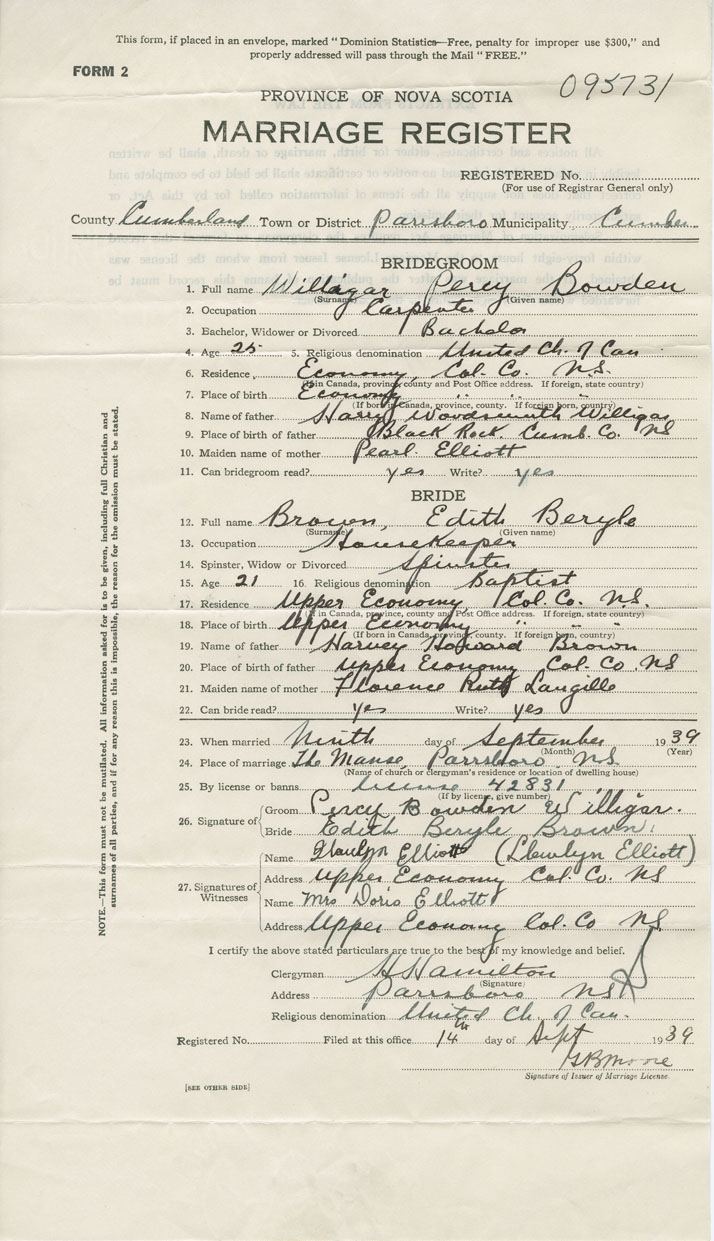 This form, if placed in an envelope, marked "Dominion Statistics—Free, penalty for improper use $300," and
properly addressed will pass through the Mail "FREE."
FORM 2
095731
PROVINCE OF NOVA SCOTIA
MARRIAGE REGISTER
REGISTERED No.
(For use of Registrar General only)
County Cumberland Town or District Parrsboro Municipality Cumber
BRIDEGROOM
1. Full name Willigar Percy Bowden
(Surname) (Given name)
2. Occupation Carpenter
3. Bachelor, Widower or Divorced Bachelor
4. Age 25 5. Religious denomination United Ch. of Can.
6. Residence Economy, Col. Co. N.S.
(If in Canada, province, county and Post Office address. If foreign, state country)
7. Place of birth Economy " " "
(If born in Canada, province, county. If foreign born, country)
8. Name of father Harry Woodsworth Willigar
9. Place of birth of father Black Rock. Cumb. Co. NS
10. Maiden name of mother Pearl Elliott
11. Can bridegroom read? yes Write? yes
BRIDE
12. Full name Brown, Edith Beryle
(Surname) (Given name)
13. Occupation Housekeeper
14. Spinster, Widow or Divorced Spinster
15. Age 21 16. Religious denomination Baptist
17. Residence Upper Economy, Col. Co. N.S.
(If in Canada, province, county and Post Office address. If foreign, state country)
18. Place of birth Upper Economy " " "
(If born in Canada, province, county. If foreign born, country)
19. Name of father Harvey Howard Brown
20. Place of birth of father Upper Economy Col. Co. NS
21. Maiden name of mother Florence Ruth Langille
22. Can bride read? yes Write? yes
23. When married Ninth day of September 1939
(Month) (Year)
24. Place of marriage The Manse, Parrsboro N.S.
(Name of church or clergyman's residence or location of dwelling house)
25. By license or banns license 42831
(If by license, give number)
26. Signature of
Groom Percy Bowden Willigar.
Bride Edith Beryle Brown.
27. Signatures of Witnesses
Name Llewlyn Elliott (Llewlyn Elliott)
Address Upper Economy Col. Co. NS
Name Mrs Doris Elliott
Address Upper Economy Col. Co NS
I certify the above stated particulars are true to the best of my knowledge and belief.
Clergyman Hamilton
(Signature)
Address Parrsboro NS
Religious denomination United Ch. of Can.
Registered No. Filed at this office 14th day of Sept 1939
GB Moore
Signature of Issuer of Marriage License.
[SEE OTHER SIDE]
NOTE.—This form must not be mutilated. All information asked for is to be given, including full Christian and
surnames of all parties, and if for any reason this is impossible, the reason for the omission must be stated.